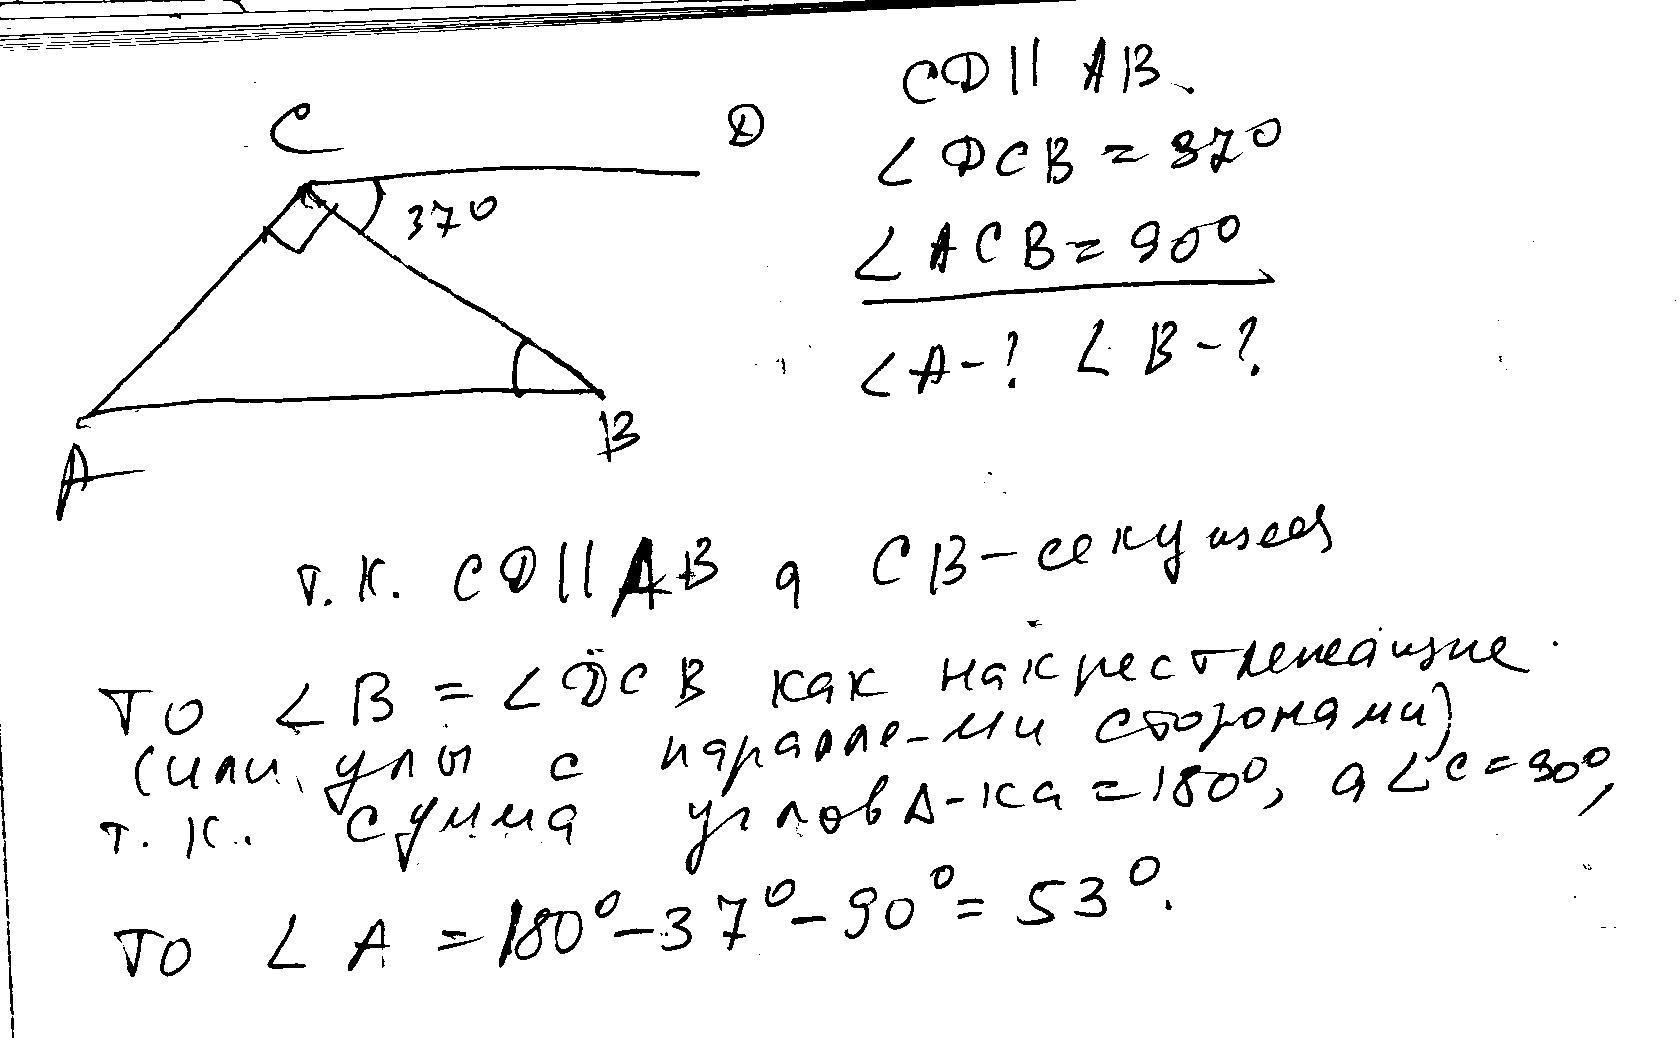 C D
37°
A B
CD || AB.
∠DCB = 37°
∠ACB = 90°
∠A-? ∠B-?
т.к. CD || AB а CB-секущая
то ∠B = ∠DCB как накрестлежащие.
(или углы с паралле-ми сторонами)
т.к. сумма углов Δ-ка = 180°, а ∠C = 90°,
то ∠A = 180° - 37° - 90° = 53°.